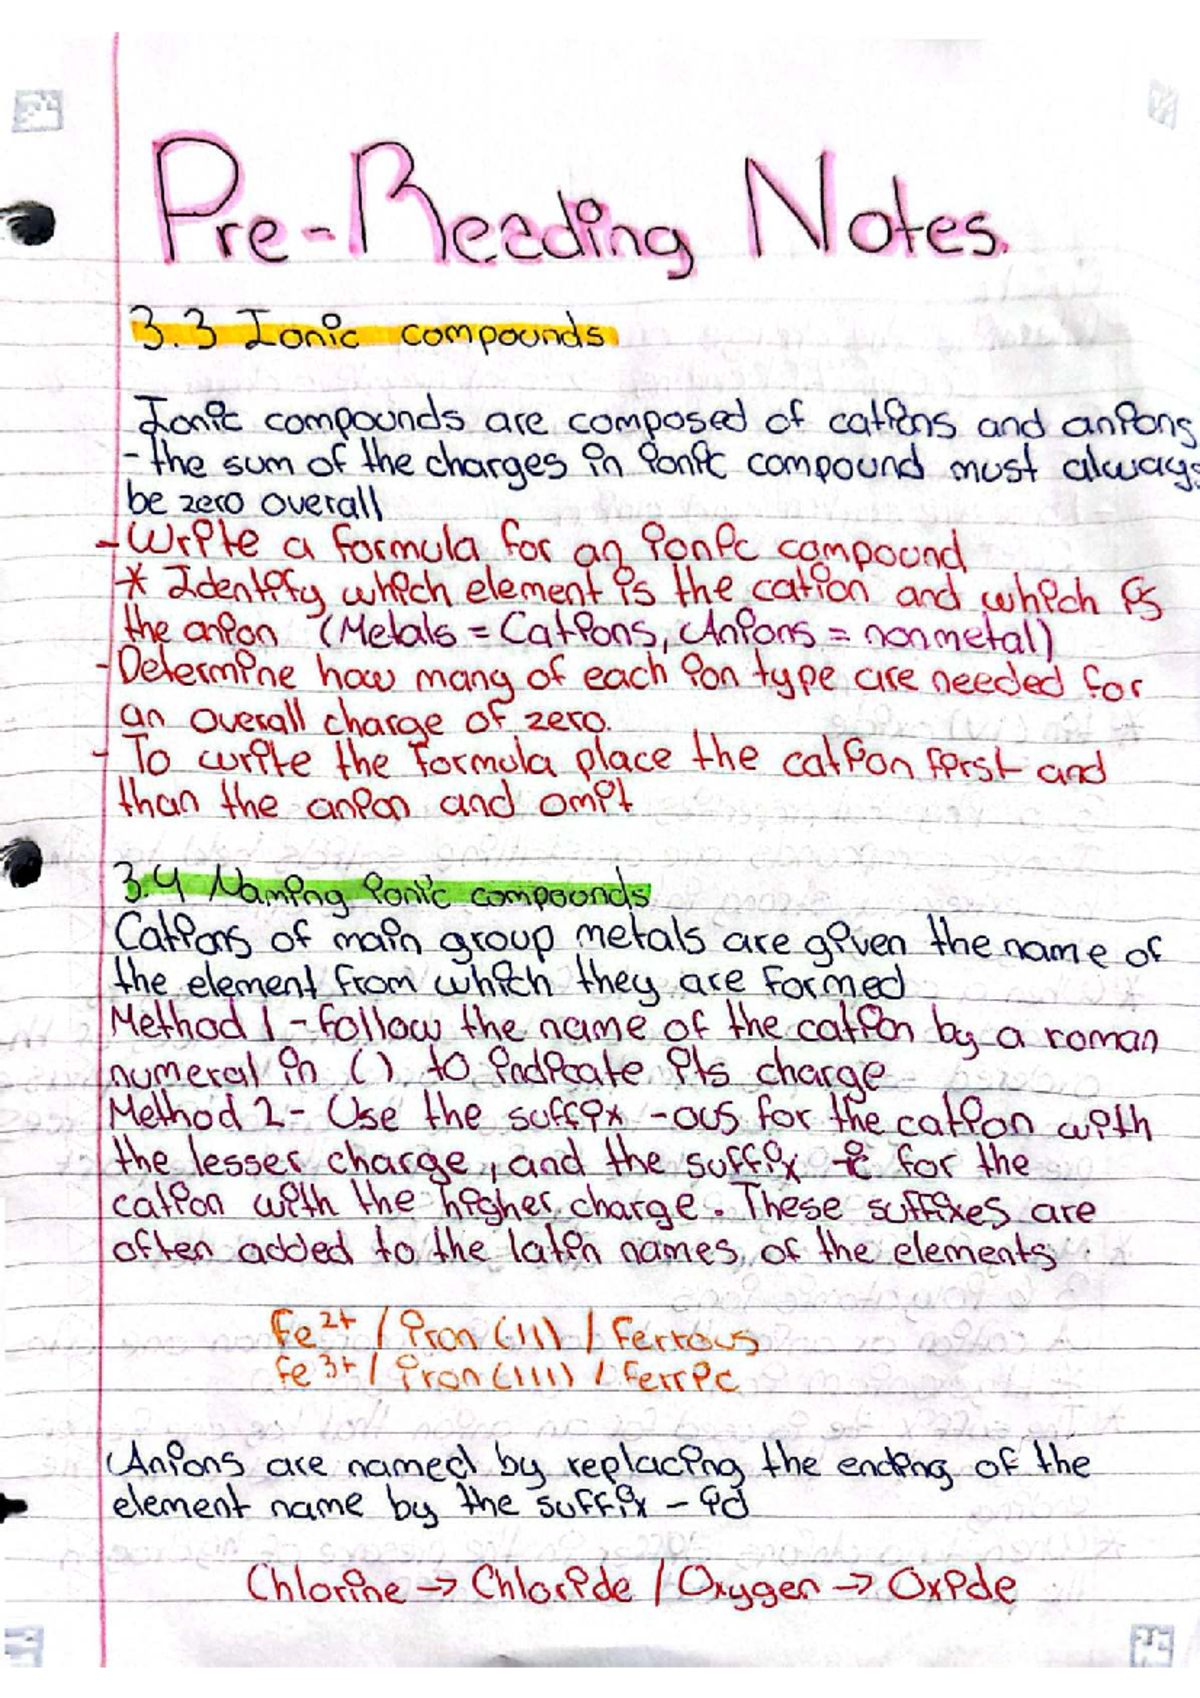 Pre-Reading Notes.
3.3 Ionic compounds
Ionic compounds are composed of cations and anions
- the sum of the charges in ionic compound must always
be zero overall
- Write a formula for an ionic compound
* Identify which element is the cation and which is
the anion (Metals = Cations, Anions = nonmetal)
- Determine how many of each ion type are needed for
an overall charge of zero.
- To write the formula place the cation first and
than the anion and omit
3.4 Naming ionic compounds
Cations of main group metals are given the name of
the element from which they are formed
Method 1 - follow the name of the cation by a roman
numeral in ( ) to indicate its charge
Method 2 - Use the suffix -ous for the cation with
the lesser charge, and the suffix -ic for the
cation with the higher charge. These suffixes are
often added to the latin names of the elements
Fe²⁺ / iron (11) / Ferrous
Fe³⁺ / iron (111) / Ferric
Anions are named by replacing the ending of the
element name by the suffix - id
Chlorine → Chloride / Oxygen → Oxide